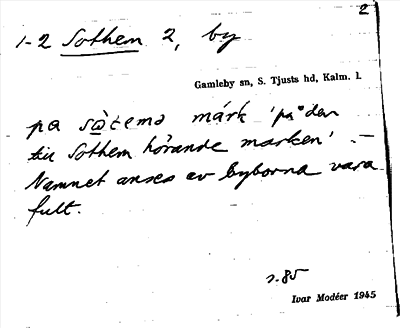 2
1-2 Sothem 2, by
Gamleby sn, S. Tjusts hd, Kalm. l.
pa sòtemə márk 'på den
till Sothem hörande marken'. —
Namnet anses av byborna vara
fult.
s. 85
Ivar Modéer 1945